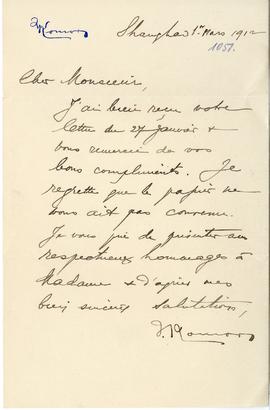 Shanghai 1er Mars 1912
1051.
Cher Monsieur,
J'ai bien reçu votre
lettre du 27 janvier &
vous remercie de vos
bons compliments. Je
regrette que le papier ne
vous ait pas convenu.
Je vous prie de présenter mes
respectueux hommages à
Madame & d'agréer mes
bien sincères salutations,